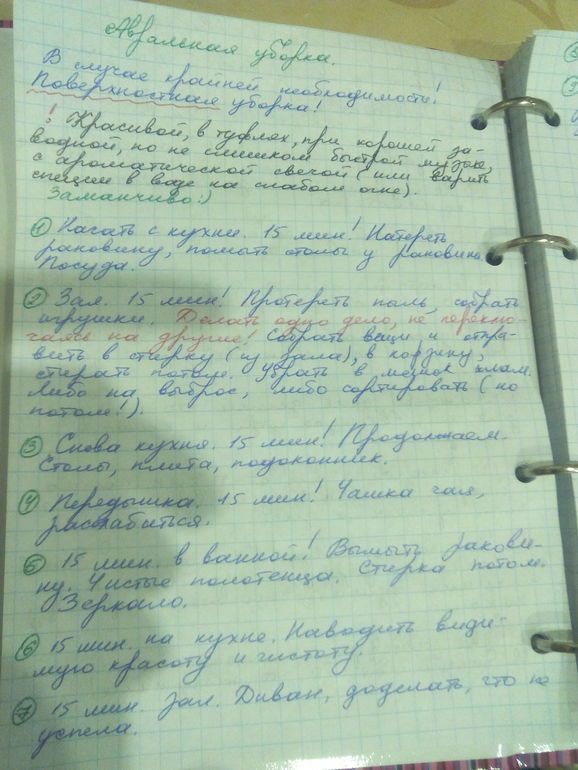 Авральная уборка.
В случае крайней необходимости!
Поверхностная уборка!
! Красивой, в туфлях, при хорошей за-
водной, но не слишком быстрой музыке,
с ароматической свечой (или варить
специи в воде на слабом огне).
Заманчиво:)
1 Начать с кухни. 15 мин! Натереть
раковину, помыть столы у раковины.
Посуда.
2 Зал. 15 мин! Протереть пыль, собрать
игрушки. Делать одно дело, не переклю-
чаясь на другие! Собрать вещи и отпра-
вить в стирку (из зала), в корзину,
стирать потом. Убрать в мешок хлам.
Либо на выброс, либо сортировать (но
потом!).
3 Снова кухня. 15 мин! Продолжаем.
Столы, плита, подоконник.
4 Передышка. 15 мин! Чашка чая,
расслабиться.
5 15 мин. в ванной! Вымыть ракови-
ну. Чистые полотенца. Стирка потом.
Зеркало.
6 15 мин. на кухне. Наводить види-
мую красоту и чистоту.
7 15 мин. зал. Диван, доделать, что не
успела.